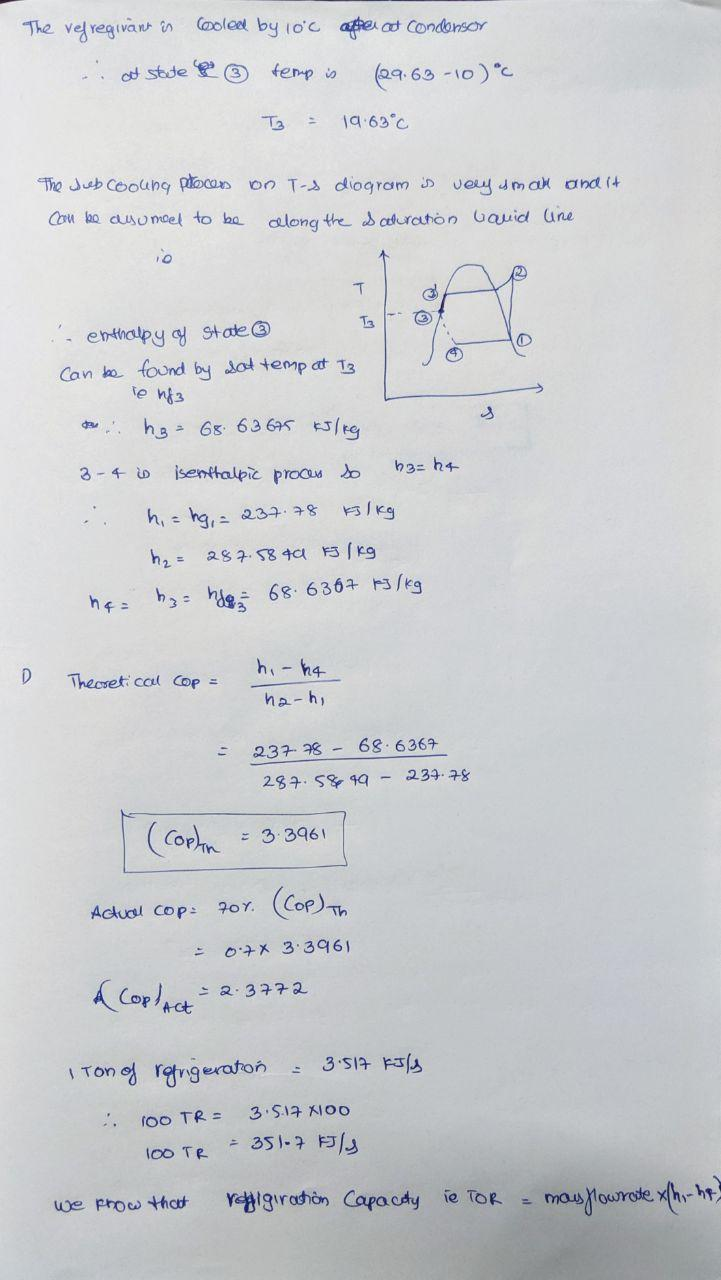 The refregirant is cooled by 10°c at condensor
∴ at state ③ temp is (29.63 -10)°c
T3 = 19.63°c
The sub cooling process on T-s diagram is very small and it
can be assumed to be along the saturation liquid line
ie
T
T3
②
③'
③
④
①
s
∴ enthalpy of state ③
can be found by sat temp at T3
ie hf3
∴ h3 = 68.63675 KJ/kg
3-4 is isenthalpic process so h3= h4
∴ h1 = hg1 = 237.78 KJ/kg
h2 = 287.5849 KJ/kg
h4 = h3 = hf3 = 68.6367 KJ/kg
D Theoretical COP = h1 - h4 / h2 - h1
= 237.78 - 68.6367 / 287.5849 - 237.78
(COP)Th = 3.3961
Actual COP = 70%. (COP)Th
= 0.7 x 3.3961
(COP)Act = 2.3772
1 Ton of refrigeration = 3.517 KJ/s
∴ 100 TR = 3.517 x100
100 TR = 351.7 KJ/s
we know that refrigiration Capacity ie TOR = mass flowrate x(h1-h4)